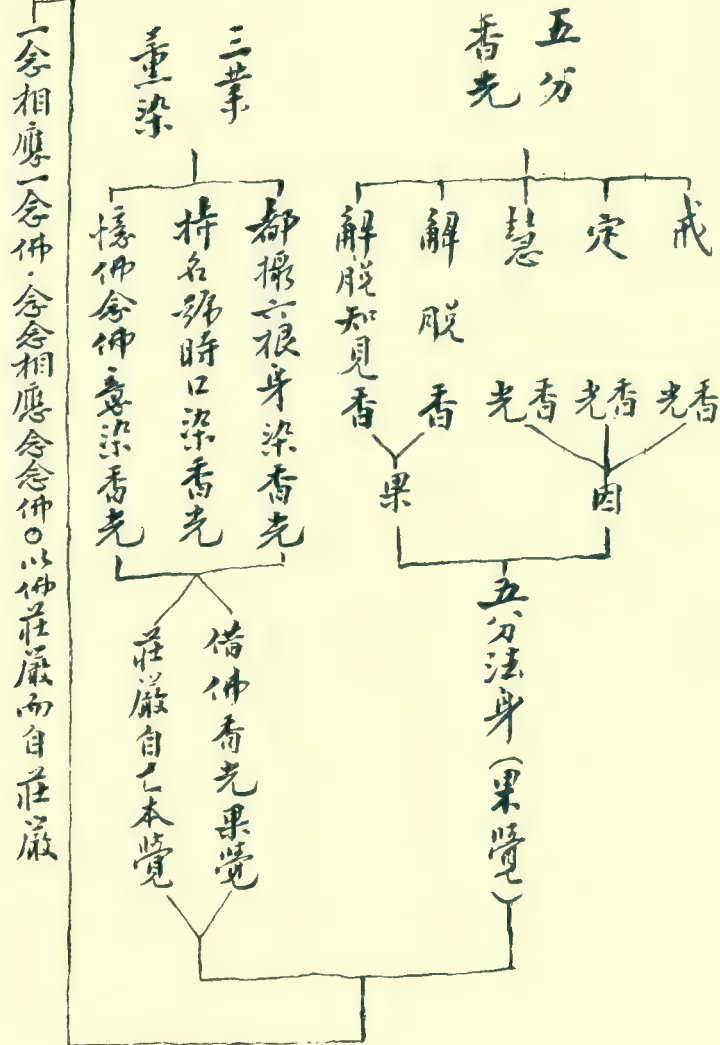 五分
香光
戒 香光
定 香光
慧 香光
解脫 香
解脫知見香
因
果
五分法身（果覺）
三業
薰染
都攝六根身染香光
持名號時口染香光
憶佛念佛意染香光
借佛香光果覺
莊嚴自己本覺
一念相應一念佛．念念相應念念佛。以佛莊嚴而自莊嚴